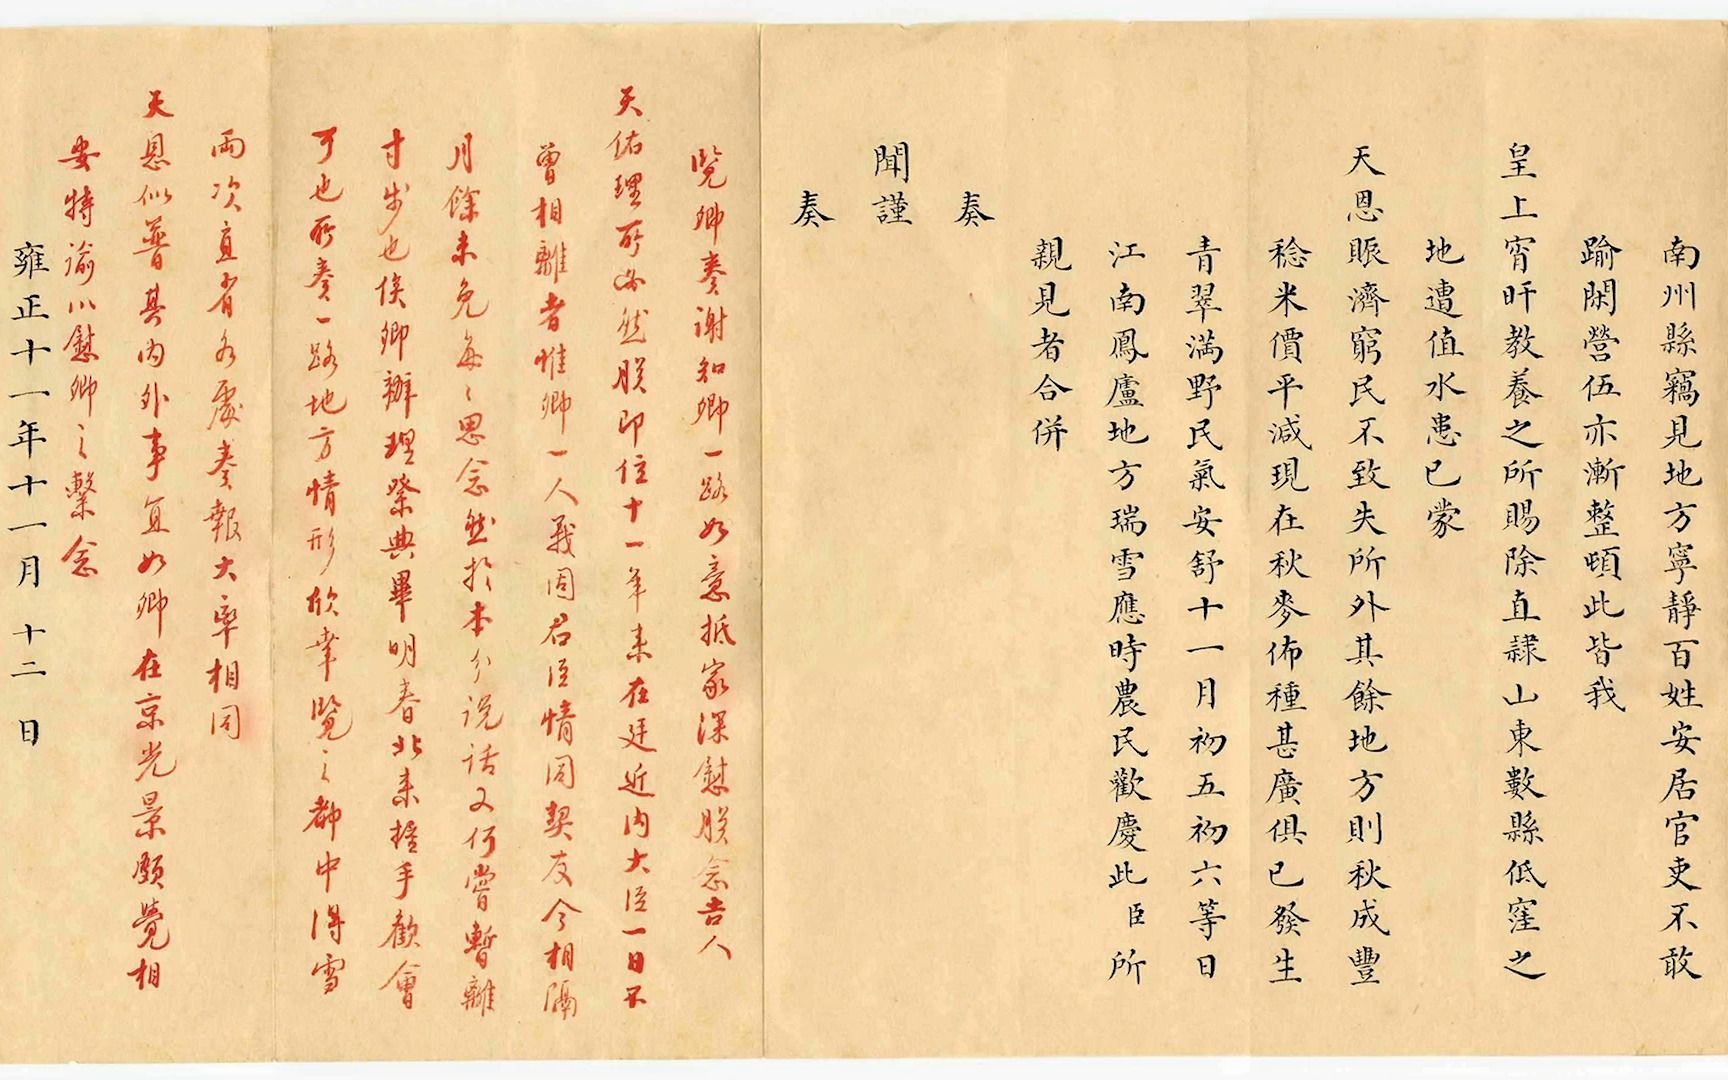 南州縣竊見地方寧靜百姓安居官吏不敢
踰閑營伍亦漸整頓此皆我
皇上宵旰教養之所賜除直隸山東數縣低窪之
地遭值水患已蒙
天恩賑濟窮民不致失所外其餘地方則秋成豐
稔米價平減現在秋麥佈種甚廣俱已發生
青翠滿野民氣安舒十一月初五初六等日
江南鳳廬地方瑞雪應時農民歡慶此臣所
親見者合併
奏
聞謹
奏
覽卿奏謝知卿一路如意抵家深慰朕念吉人
天佑理所必然朕即位十一年來在廷近內大臣一日不
曾相離者惟卿一人義固君臣情同契友今相隔
月餘未免每々思念然於本分說話又何嘗暫離
寸步也俟卿辦理祭典畢明春北來握手歡會
可也所奏一路地方情形欣幸覽之都中得雪
兩次直省各處奏報大率相同
天恩似普其內外事宜如卿在京光景頗覺相
安特諭以慰卿之繫念
雍正十一年十一月十二日